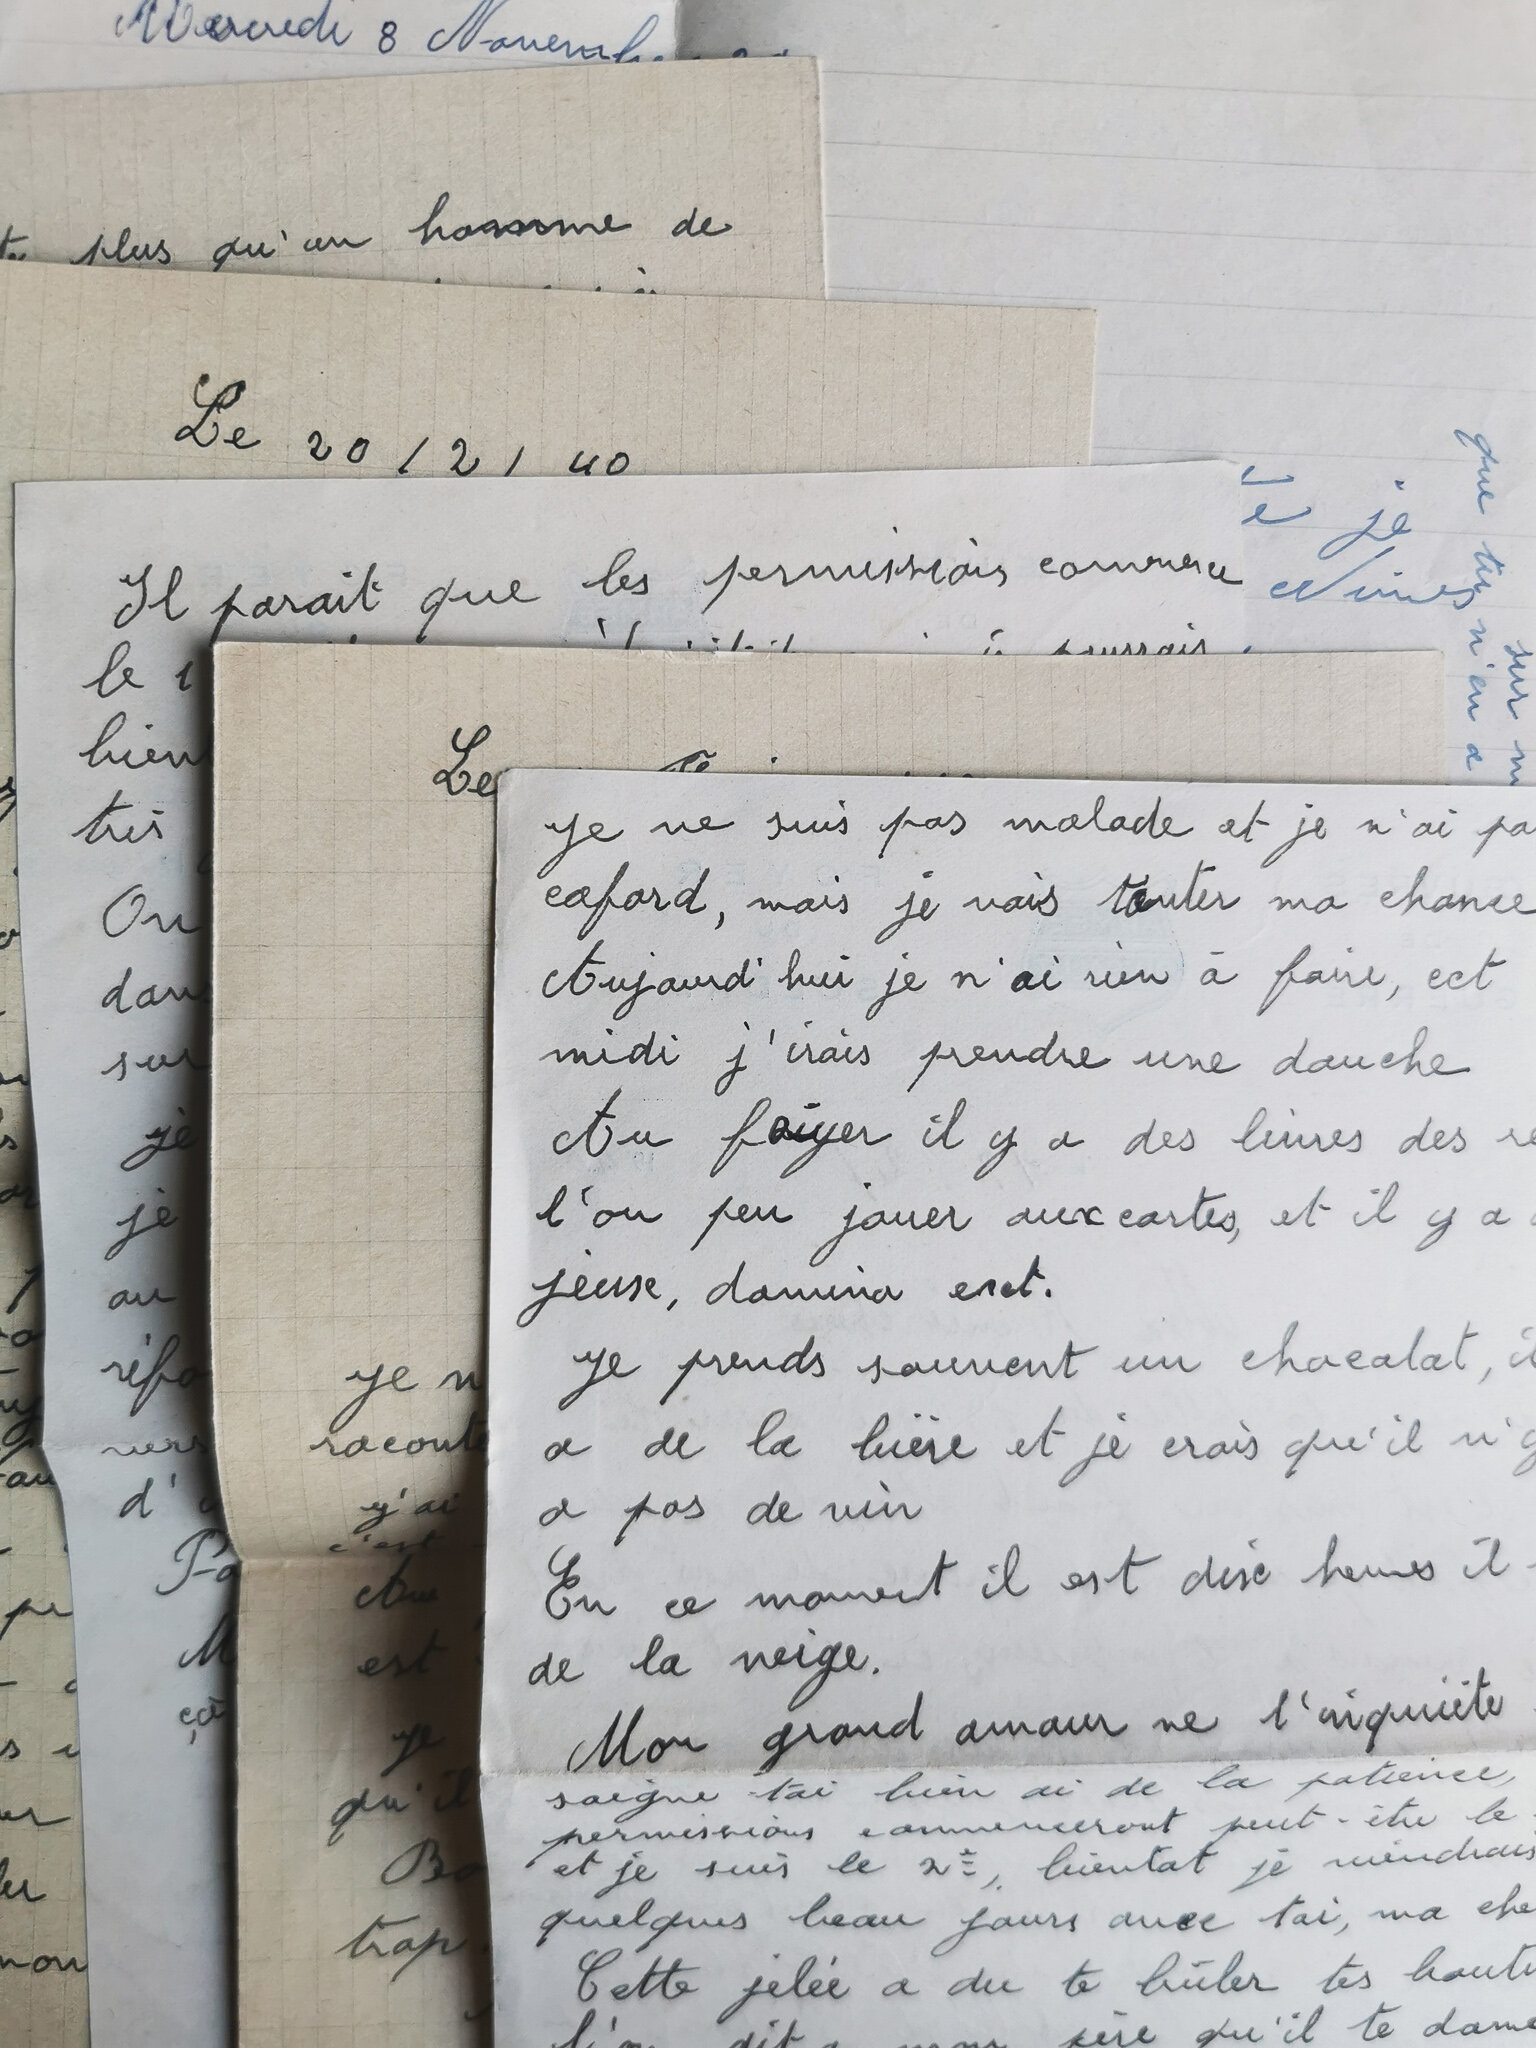 Mercredi 8 Novembre
plus qu'un homme de
Le 20/2/40
Il parait que les permissions commence
le 1
bien
très
On
dan
sur
je
je
au
réfo
vers
d'
Pa
M
Le
je n
raconte
j'ai
c'est
Au
est
je
qu'il
Bo
trop
je
Nimes
que tu n'en a
sur m
je ne suis pas malade et je n'ai pa
cafard, mais je vais tenter ma chance
Aujourd'hui je n'ai rien à faire, cet
midi j'irais prendre une douche
Au foiyer il y a des livres des re
l'on peu jouer aux cartes, et il y a
jeuse, domino ect.
je prends souvent un chocolat, il
a de la bière et je crois qu'il n'y
a pas de vin
En ce moment il est dixe heures il
de la neige.
Mon grand amour ne t'inquiète
soigne-toi bien ai de la patience,
permissions commenceront peut-être le
et je suis le 2e, bientot je viendrais
quelques beau jours avec toi, ma che
Cette jelée a du te brûler tes
l'on dit a mon père qu'il te donne